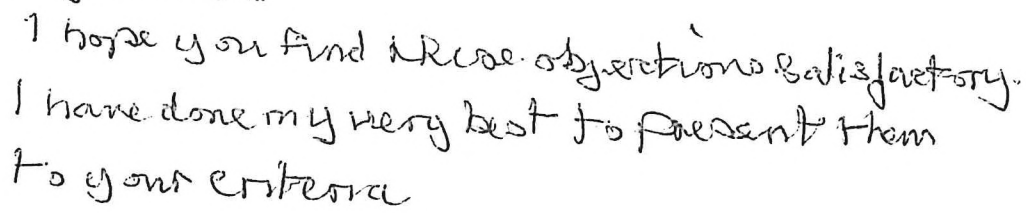 I hope you find these objections satisfactory.
I have done my very best to present them
to your criteria